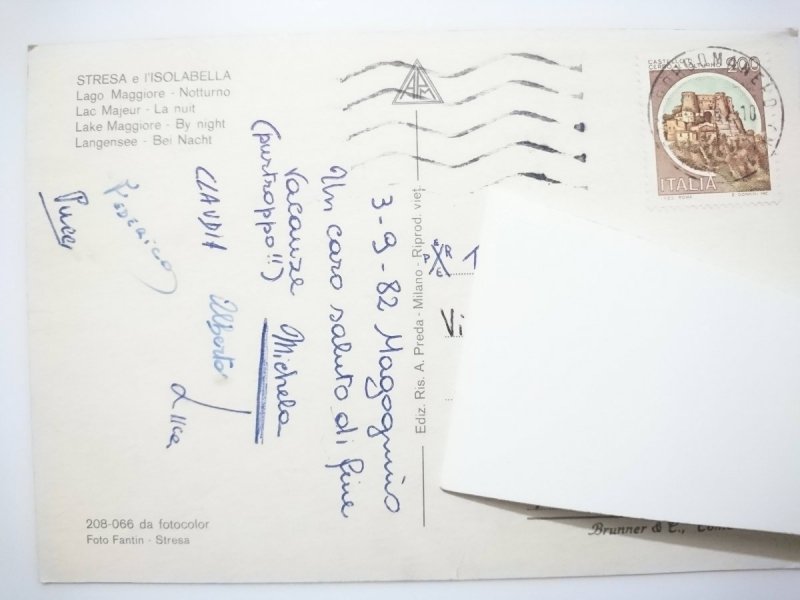 STRESA e l'ISOLABELLA
Lago Maggiore - Notturno
Lac Majeur - La nuit
Lake Maggiore - By night
Langensee - Bei Nacht
3-9-82 Magognino
Un caro saluto di fine
vacanze
(purtroppo!!)
Michela
CLAUDIA
Alberto
Luca
Federico
Pucci
208-066 da fotocolor
Foto Fantin - Stresa
Ediz. Ris. A. Preda - Milano - Riprod. viet.
200
ITALIA
PER
Vi
Brunner & C.,